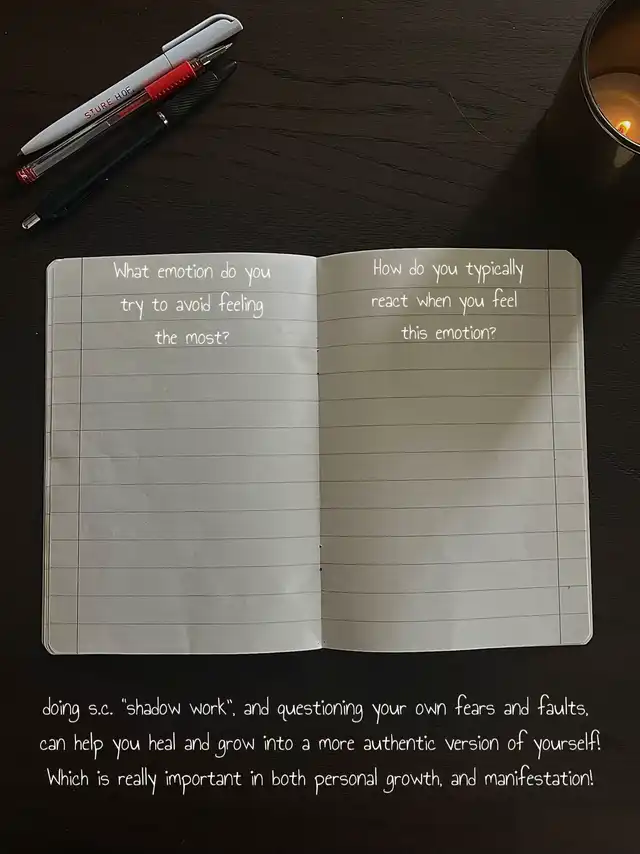 STURE HOF.
What emotion do you
try to avoid feeling
the most?
How do you typically
react when you feel
this emotion?
doing s.c. "shadow work", and questioning your own fears and faults,
can help you heal and grow into a more authentic version of yourself!
Which is really important in both personal growth, and manifestation!